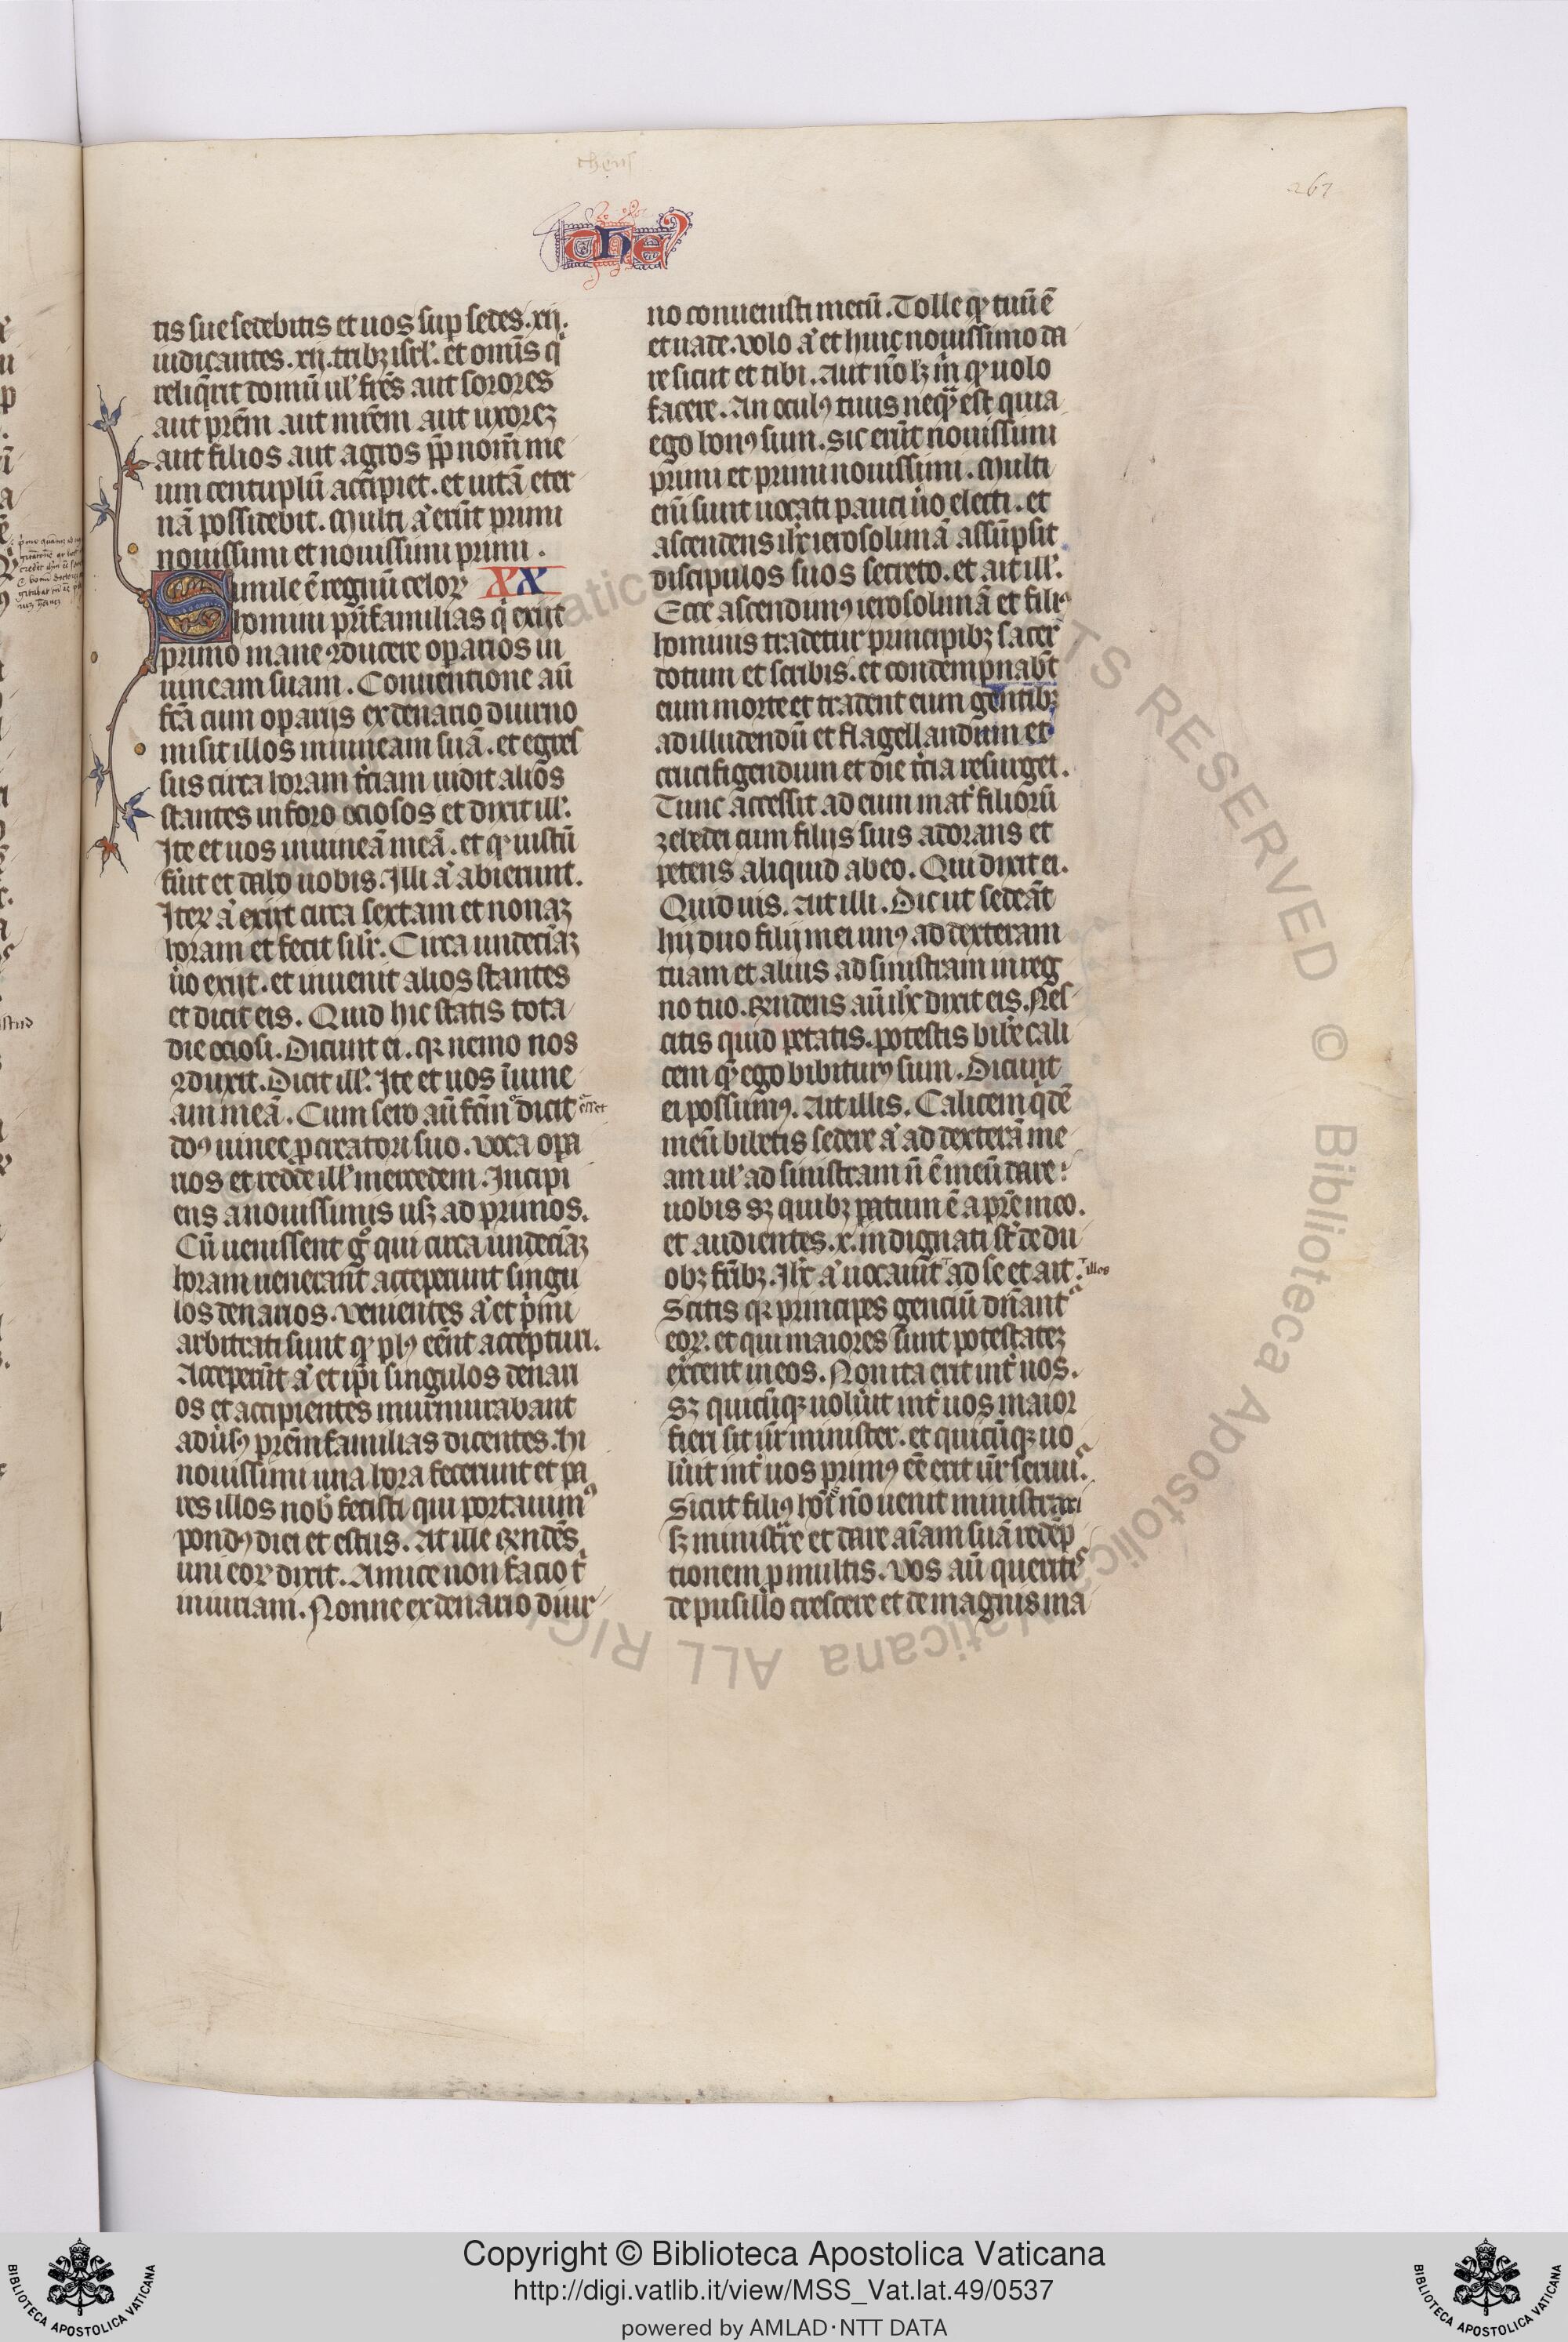 thens
267
the
tis sue sedebitis et uos sup sedes .xij.
iudicantes .xij. tribꝫ isrl'. et omīs q
reliq̄rit domū ul' fr̄es aut sorores
aut prēm aut mr̄em aut uxoreꝫ
aut filios aut agros ꝓp nom̄ me
um centuplū accipiet. et uitā eter
nā possidebit. Multi a' erūt primi
nouissimi et nouissimi primi.
Simile ē regnū celoꝝ XX
homini pr̄ifamilias q' exijt
primo mane ꝯducere oparios in
uineam suam. Conuentione aū
fcā cum oparijs ex denario diurno
misit illos in uineam suā. et egres
sus circa horam t'ciam uidit alios
stantes in foro ociosos et dixit ill'.
Ite et uos in uineā meā. et qd' iustū
fu'it et dabo uobis. Illi a' abierunt.
Iteꝝ a' exijt circa sextam et nonaꝫ
horam et fecit silr'. Circa undecīaꝫ
u'o exijt. et inuenit alios stantes
et dicit eis. Quid hic statis tota
die ociosi. Dicunt ei. qꝛ nemo nos
ꝯduxit. Dicit ill'. Ite et uos ī uine
am meā. Cum sero aū fcm̄ dicit eēt
dn̄s uinee pcuratori suo. Voca opa
rios et redde ill' mercedem. Incipi
ens a nouissimis usqꝫ ad primos.
Cū uenissent g° qui circa undecīaꝫ
horam uenerant acceperunt singu
los denarios. Venientes a' et p'mi
arbitrati sunt qd' plꝰ eēnt accepturi.
Acceper̄ut a' et ip̄i singulos denari
os et accipientes murmurabant
adu'sꝰ prēmfamilias dicentes. Hi
nouissimi una hora fecerunt et pa
res illos nob' fecisti qui portauimꝰ
pondꝰ diei et estus. At ille rn̄dēs
uni eoꝝ dixit. Amice non facio t'
iniuriam. Nonne ex denario diur
no conuenisti mecū. Tolle qd' tuū ē
et uade. Volo a' et huic nouissimo da
re sicut et tibi. Aut nō lꝫ m' qd' uolo
facere. An oculꝰ tuus neq̄m est quia
ego bonꝰ sum. Sic erūt nouissimi
primi et primi nouissimi. Multi
eni sunt uocati pauci u'o electi. et
ascendens ihc ierosolimā assūpsit
discipulos suos secreto. et ait ill'.
Ecce ascendimꝰ ierosolimā et filiꝰ
hominis tradetur principibꝫ sacer
dotum et scribis. et condempnabt̄
eum morte et tradent eum gentibꝫ
ad illudendū et flagellandum et
crucifigendum et die t'cia resurget.
Tunc accessit ad eum mat' filiorū
zebedei cum filijs suis adorans et
petens aliquid ab eo. Qui dixit ei.
Quid uis. Ait illi. Dic ut sedeāt
hij duo filij mei unꝰ ad dexteram
tuam et alius ad sinistram in reg
no tuo. Rn̄dens aū ihc dixit eis. Nes
citis quid petatis. potestis bib'e cali
cem qm̄ ego bibiturꝰ sum. Dicunt
ei possumꝰ. Ait illis. Calicem q'dē
meū bibetis sedere a' ad dexterā me
am ul' ad sinistram n̄ ē meū dare
uobis sꝫ quibꝫ patum ē a prē meo.
et audientes .x. indignati st' de du
obꝫ fr̄ibꝫ. Ihc a' uocauit ad se et ait. illos
Scitis qꝛ principes genciū dn̄ant'
eoꝝ. et qui maiores sunt potestateꝫ
ex'cent in eos. Non ita erit int' uos.
Sꝫ quicūqꝫ uolu'it int' uos maior
fieri sit ur̄ minister. et quicūqꝫ uo
lu'it int' uos primꝰ eē erit ur̄ seruuˢ.
Sicut filiꝰ hoīs nō uenit ministrari
sꝫ ministrare et dare aīam suā redēp
tionem p multis. Vos aū querite
de pusillo crescere et de magnis ma
Copyright © Biblioteca Apostolica Vaticana
http://digi.vatlib.it/view/MSS_Vat.lat.49/0537
powered by AMLAD·NTT DATA
BIBLIOTECA APOSTOLICA VATICANA
BIBLIOTECA APOSTOLICA VATICANA